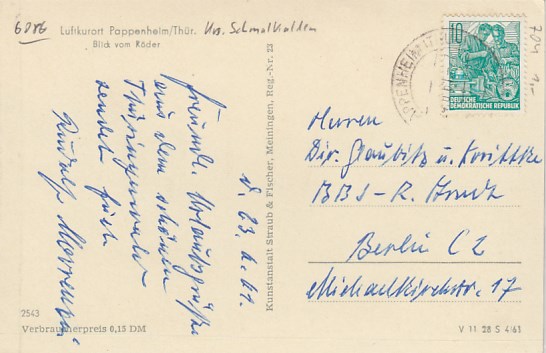 6086
Luftkurort Pappenheim/Thür. Krs. Schmalkalden
Blick vom Köder
d. 23. 6. 61.
Freundl. Urlaubsgrüße
aus dem schönen
Thüringerwald
sendet Euch
Rudolf
Kunstanstalt Straub & Fischer, Meiningen, Reg.-Nr. 23
2543
Verbraucherpreis 0,15 DM
PAPPENHEIM (THÜR
10
DEUTSCHE
DEMOKRATISCHE REPUBLIK
704
Herren
Dir. Glaubitz u.
BBS - R.
Berlin C2
Michaelkirchstr. 17
V 11 28 S 4/61